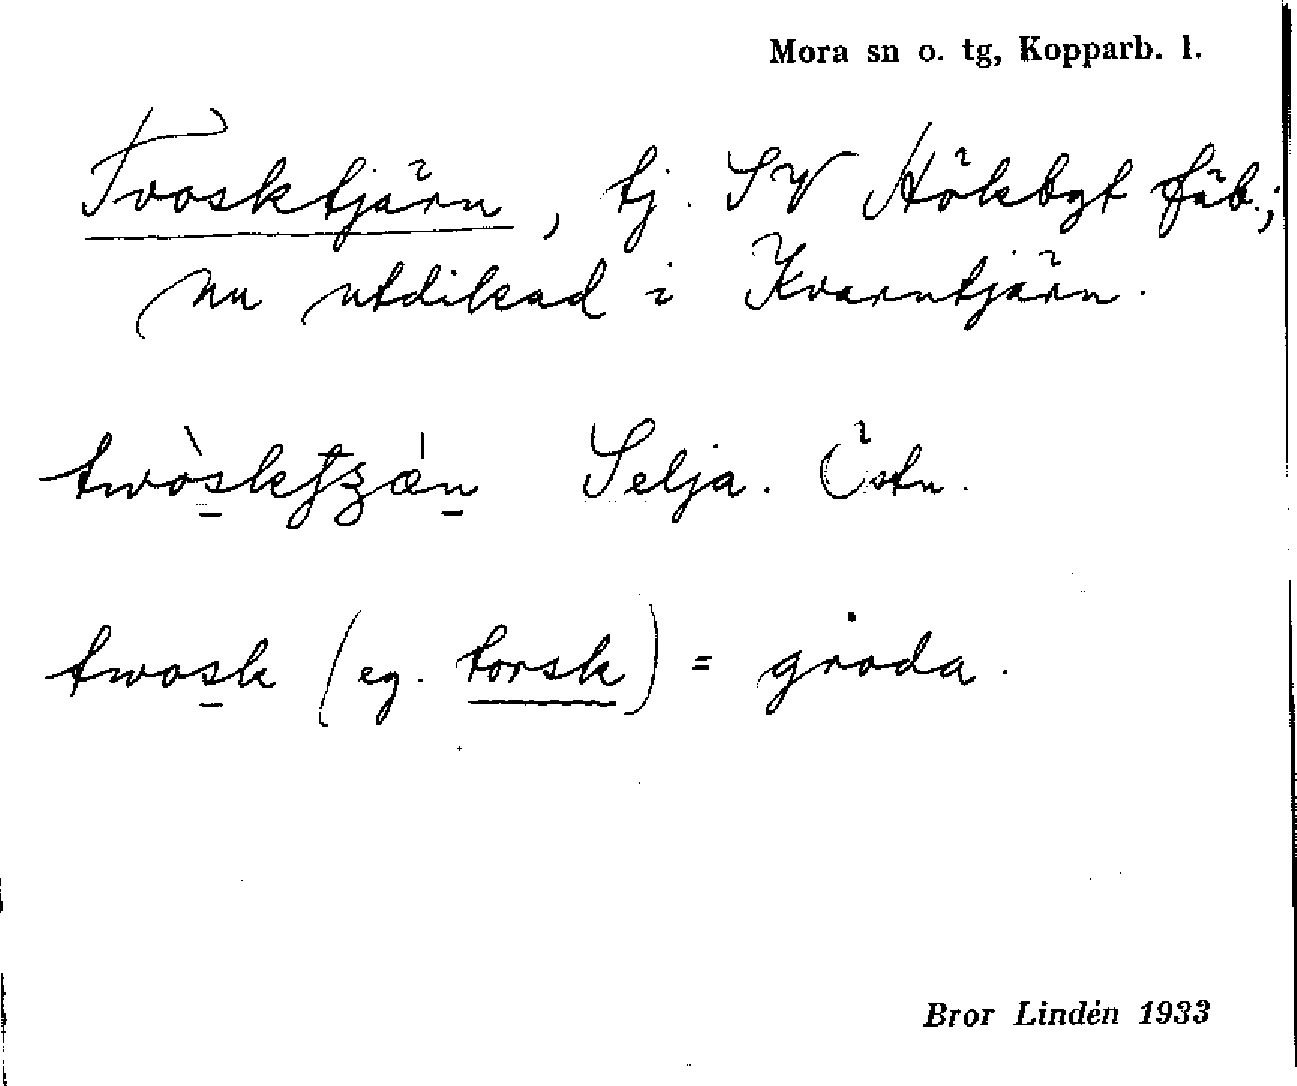 Mora sn o. tg, Kopparb. l.
Tvosktjärn, tj. SV Hökbgt fäb.;
nu utdikad i Kvarntjärn.
Selja. Östn.
twosk (eg. torsk) = groda.
Bror Lindén 1933